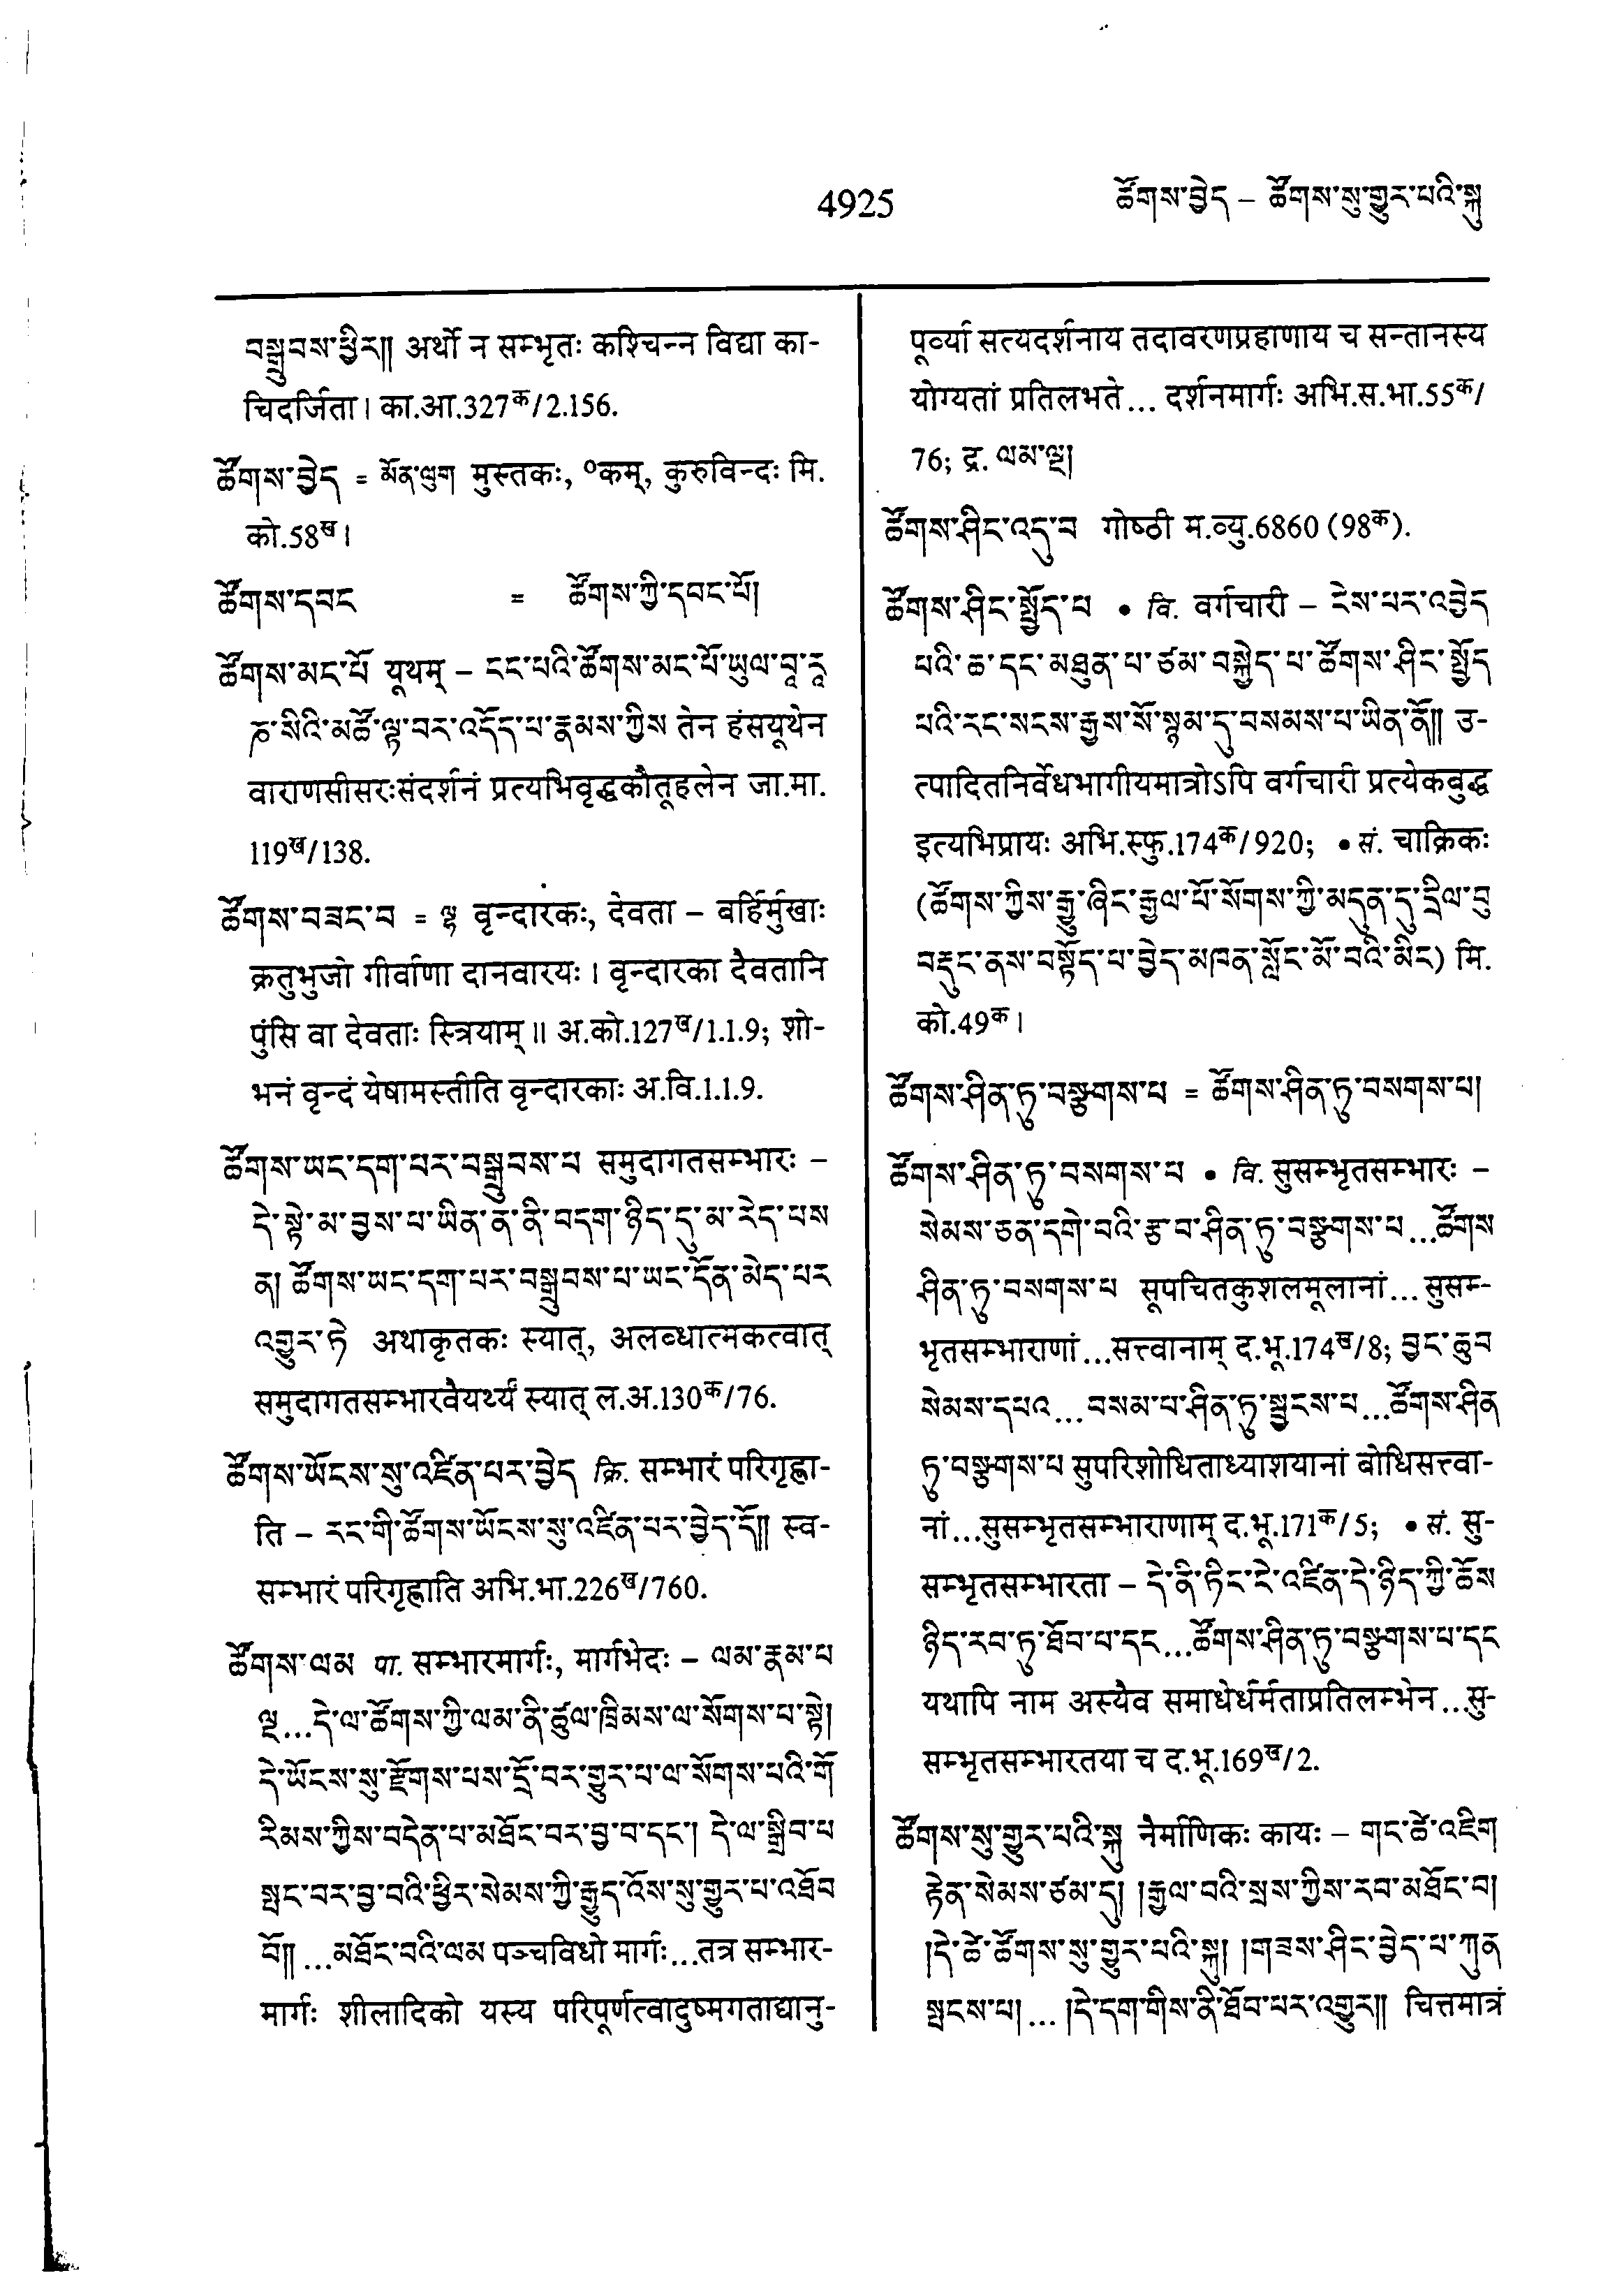 4925
ཚོགས་བྱེད – ཚོགས་སུ་གྱུར་པའི་སྐུ
བསྒྲུབས་ཕྱིར།། अर्थो न सम्भृतः कश्चिन्न विद्या का-
चिदर्जिता। का.आ.327क/2.156.
ཚོགས་བྱེད = མོན་ལུག मुस्तकः, ०कम्, कुरुविन्दः मि.
को.58ख।
ཚོགས་དབང = ཚོགས་ཀྱི་དབང་པོ།
ཚོགས་མང་པོ यूथम् – ངང་པའི་ཚོགས་མང་པོ་ཡུལ་བཱ་རཱ
ཎ་སིའི་མཚོ་ལྟ་བར་འདོད་པ་རྣམས་ཀྱིས तेन हंसयूथेन
वाराणसीसरःसंदर्शनं प्रत्यभिवृद्धकौतूहलेन जा.मा.
119ख/138.
ཚོགས་བཟང་བ = ལྷ वृन्दारकः, देवता – बर्हिर्मुखाः
क्रतुभुजो गीर्वाणा दानवारयः। वृन्दारका दैवतानि
पुंसि वा देवताः स्त्रियाम्॥ अ.को.127ख/1.1.9; शो-
भनं वृन्दं येषामस्तीति वृन्दारकाः अ.वि.1.1.9.
ཚོགས་ཡང་དག་པར་བསྒྲུབས་པ समुदागतसम्भारः –
དེ་སྟེ་མ་བྱས་པ་ཡིན་ན་ནི་བདག་ཉིད་དུ་མ་རེད་པས
ན། ཚོགས་ཡང་དག་པར་བསྒྲུབས་པ་ཡང་དོན་མེད་པར
འགྱུར་ཏེ अथाकृतकः स्यात्, अलब्धात्मकत्वात्
समुदागतसम्भारवैयर्थ्यं स्यात् ल.अ.130क/76.
ཚོགས་ཡོངས་སུ་འཛིན་པར་བྱེད क्रि. सम्भारं परिगृह्णा-
ति – རང་གི་ཚོགས་ཡོངས་སུ་འཛིན་པར་བྱེད་དོ།། स्व-
सम्भारं परिगृह्णाति अभि.भा.226ख/760.
ཚོགས་ལམ पा. सम्भारमार्गः, मार्गभेदः – ལམ་རྣམ་པ
ལྔ...དེ་ལ་ཚོགས་ཀྱི་ལམ་ནི་ཚུལ་ཁྲིམས་ལ་སོགས་པ་སྟེ།
དེ་ཡོངས་སུ་རྫོགས་པས་དྲོ་བར་གྱུར་པ་ལ་སོགས་པའི་གོ
རིམས་ཀྱིས་བདེན་པ་མཐོང་བར་བྱ་བ་དང་། དེ་ལ་སྒྲིབ་པ
སྤང་བར་བྱ་བའི་ཕྱིར་སེམས་ཀྱི་རྒྱུད་འོས་སུ་གྱུར་པ་འཐོབ
བོ།། ...མཐོང་བའི་ལམ पञ्चविधो मार्गः...तत्र सम्भार-
मार्गः शीलादिको यस्य परिपूर्णत्वादुष्मगताद्यानु-
पूर्व्या सत्यदर्शनाय तदावरणप्रहाणाय च सन्तानस्य
योग्यतां प्रतिलभते... दर्शनमार्गः अभि.स.भा.55क/
76; द्र. ལམ་ལྔ།
ཚོགས་ཤིང་འདུ་བ गोष्ठी म.व्यु.6860 (98क).
ཚོགས་ཤིང་སྤྱོད་པ • वि. वर्गचारी – ངེས་པར་འབྱེད
པའི་ཆ་དང་མཐུན་པ་ཙམ་བསྐྱེད་པ་ཚོགས་ཤིང་སྤྱོད
པའི་རང་སངས་རྒྱས་སོ་སྙམ་དུ་བསམས་པ་ཡིན་ནོ།། उ-
त्पादितनिर्वेधभागीयमात्रोऽपि वर्गचारी प्रत्येकबुद्ध
इत्यभिप्रायः अभि.स्फु.174क/920; • सं. चाक्रिकः
(ཚོགས་ཀྱིས་རྒྱུ་ཞིང་རྒྱལ་པོ་སོགས་ཀྱི་མདུན་དུ་དྲིལ་བུ
བརྡུང་ནས་བསྟོད་པ་བྱེད་མཁན་སློང་མོ་བའི་མིང) मि.
को.49क।
ཚོགས་ཤིན་ཏུ་བསྩགས་པ = ཚོགས་ཤིན་ཏུ་བསགས་པ།
ཚོགས་ཤིན་ཏུ་བསགས་པ • वि. सुसम्भृतसम्भारः –
སེམས་ཅན་དགེ་བའི་རྩ་བ་ཤིན་ཏུ་བསྩགས་པ...ཚོགས
ཤིན་ཏུ་བསགས་པ सूपचितकुशलमूलानां...सुसम्-
भृतसम्भाराणां...सत्त्वानाम् द.भू.174ख/8; བྱང་ཆུབ
སེམས་དཔའ...བསམ་པ་ཤིན་ཏུ་སྦྱངས་པ...ཚོགས་ཤིན
ཏུ་བསྩགས་པ सुपरिशोधिताध्याशयानां बोधिसत्त्वा-
नां...सुसम्भृतसम्भाराणाम् द.भू.171क/5; • सं. सु-
सम्भृतसम्भारता – དེ་ནི་ཏིང་ངེ་འཛིན་དེ་ཉིད་ཀྱི་ཆོས
ཉིད་རབ་ཏུ་ཐོབ་པ་དང...ཚོགས་ཤིན་ཏུ་བསྩགས་པ་དང
यथापि नाम अस्यैव समाधेर्धर्मताप्रतिलम्भेन...सु-
सम्भृतसम्भारतया च द.भू.169ख/2.
ཚོགས་སུ་གྱུར་པའི་སྐུ नैर्माणिकः कायः – གང་ཚེ་འཇིག
རྟེན་སེམས་ཙམ་དུ། །རྒྱལ་བའི་སྲས་ཀྱིས་རབ་མཐོང་བ།
།དེ་ཚེ་ཚོགས་སུ་གྱུར་པའི་སྐུ། །གཟས་ཤིང་བྱེད་པ་ཀུན
སྤངས་པ། ... །དེ་དག་གིས་ནི་ཐོབ་པར་འགྱུར།། चित्तमात्रं